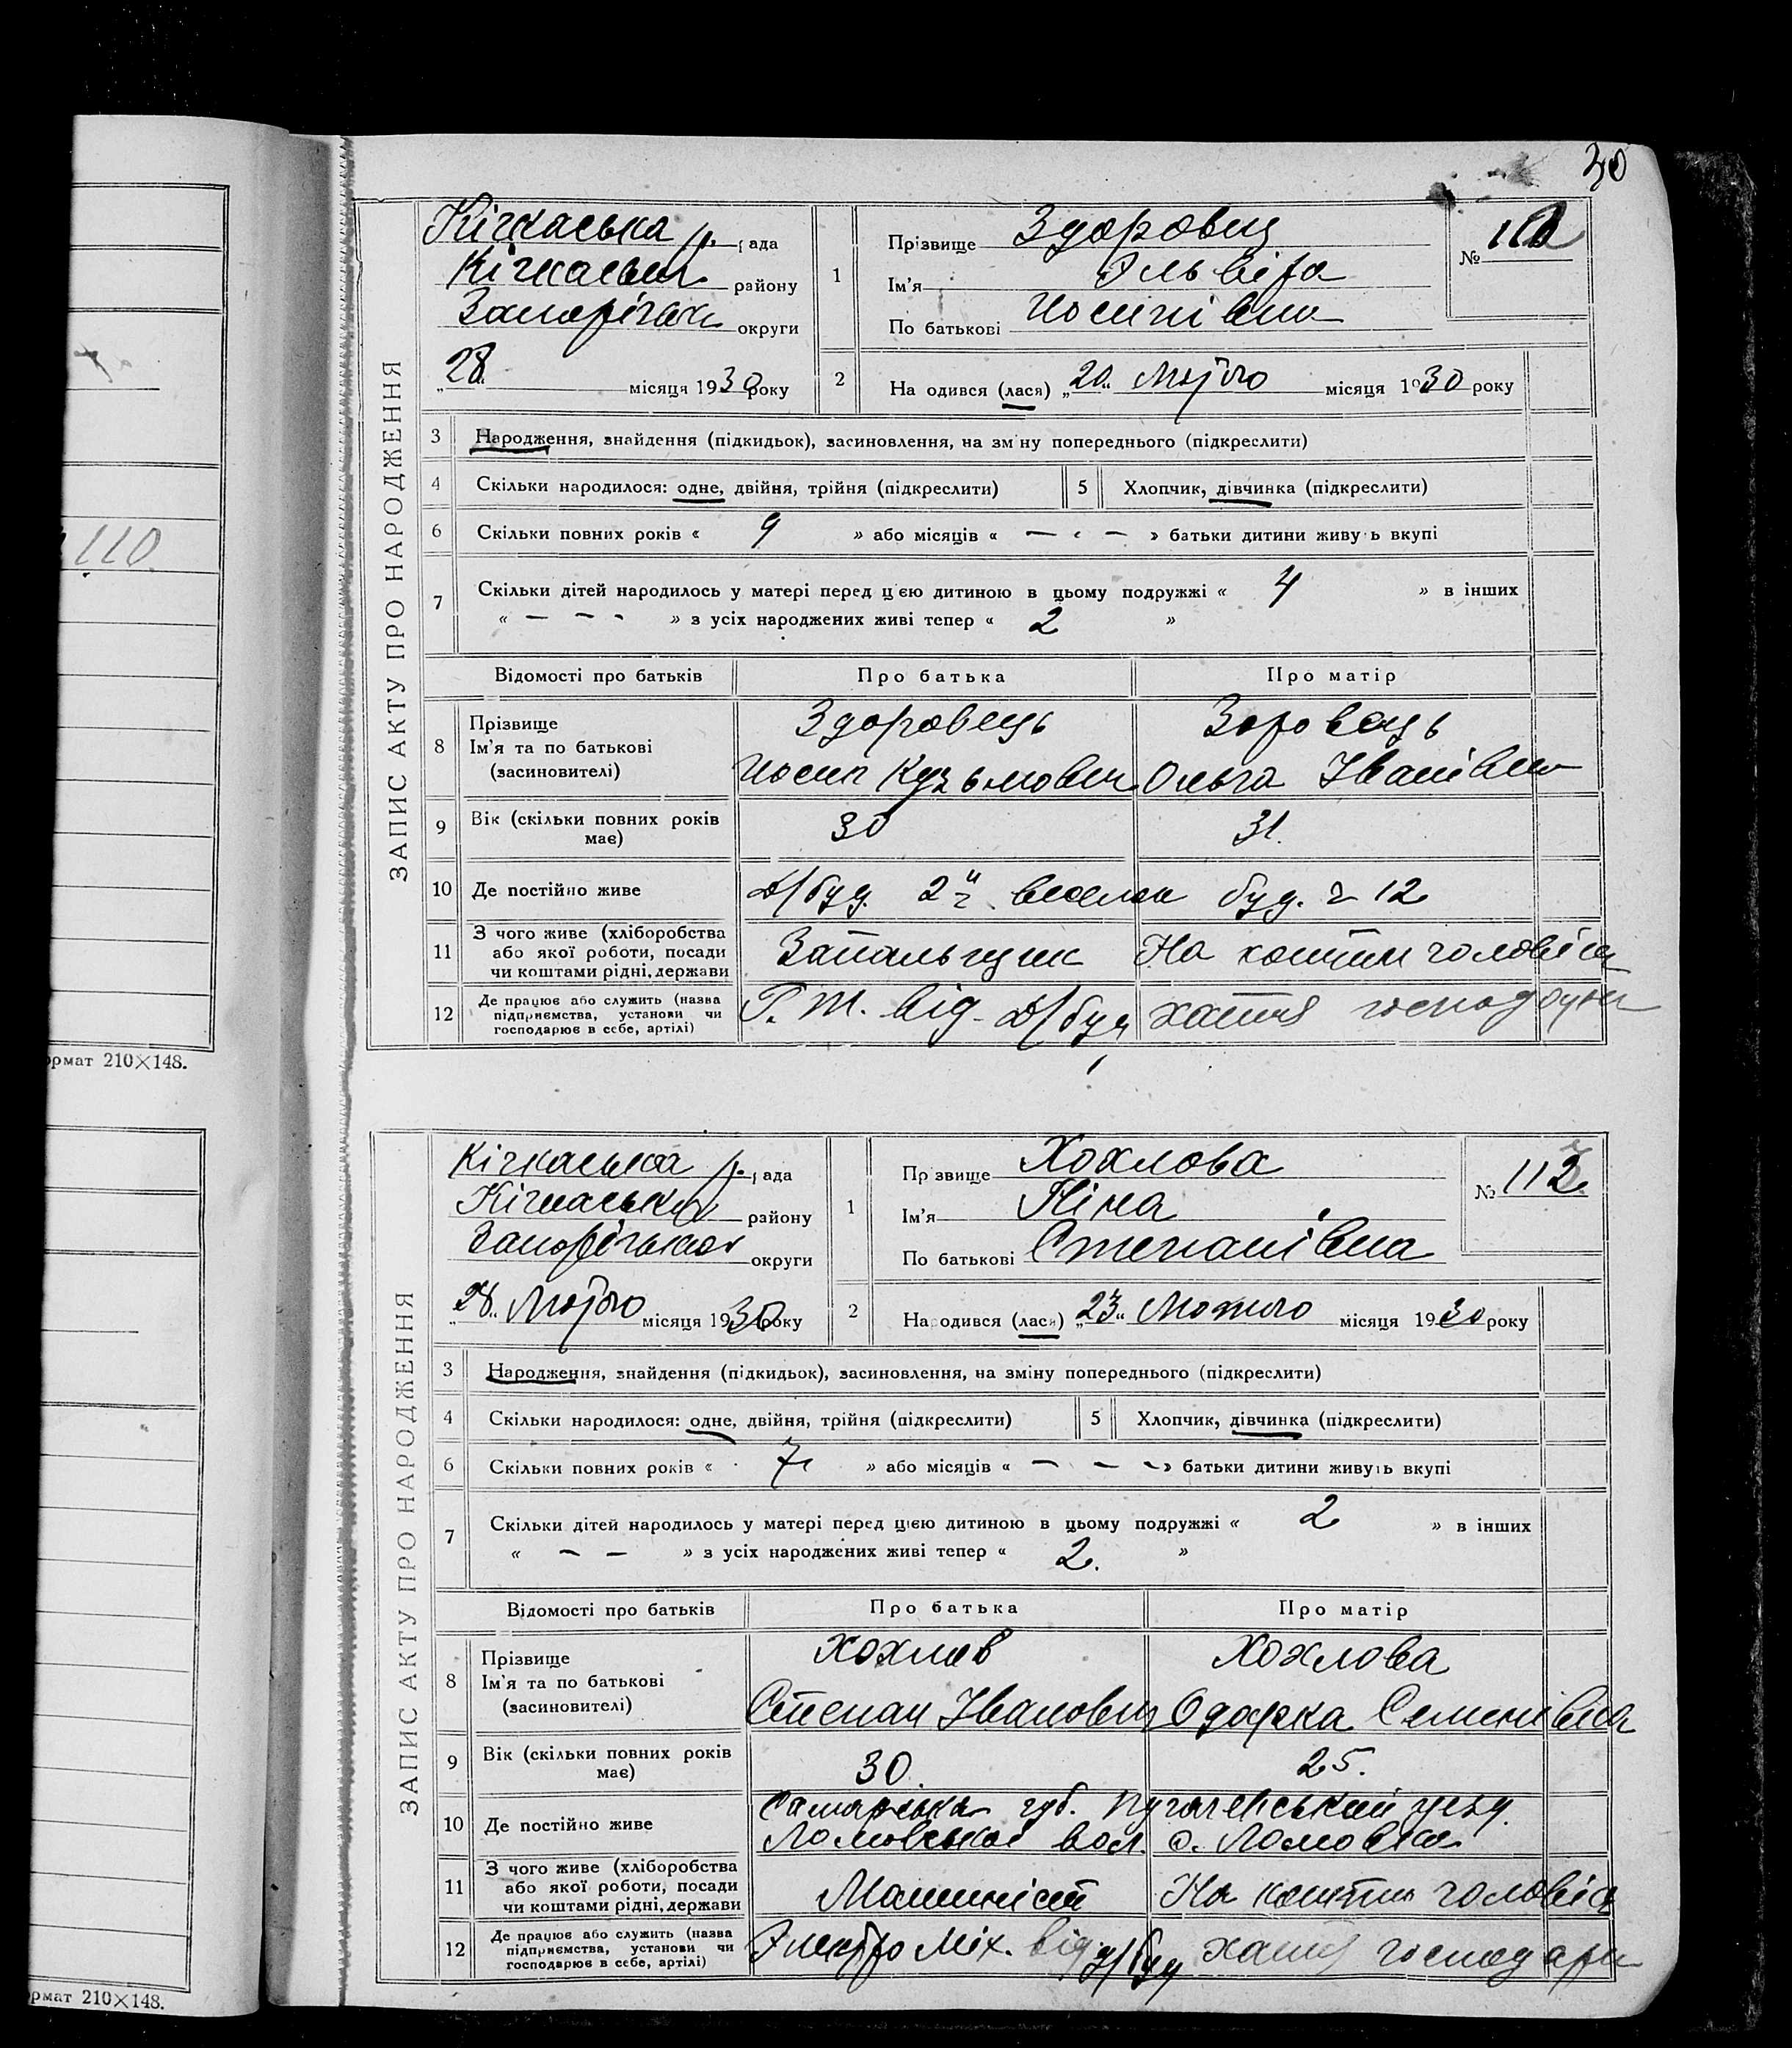 30
ЗАПИС АКТУ ПРО НАРОДЖЕННЯ
Кічкаська р. рада
Кічкаськ району
Запоріжськ округи
„28“ місяця 1930 року
1
Прізвище Здоровец
Ім'я Эльвіра
По батькові Иосипівна
№ 111
2
На одився (лася) „20“ Лютого місяця 1930 року
3 Народження, знайдення (підкидьок), засиновлення, на зміну попереднього (підкреслити)
4 Скільки народилося: одне, двійня, трійня (підкреслити) 5 Хлопчик, дівчинка (підкреслити)
6 Скільки повних років « 9 » або місяців « — - — » батьки дитини живуть вкупі
7 Скільки дітей народилось у матері перед цією дитиною в цьому подружжі « 4 » в інших
« — - - » з усіх народжених живі тепер « 2 »
Відомості про батьків Про батька Про матір
8 Прізвище
Ім'я та по батькові
(засиновителі)
Здоровець
Иосип Кузьмович
Зоровець
Ольга Іванівна
9 Вік (скільки повних років має) 30 31.
10 Де постійно живе Д/буд. 2 весела буд. ч 12
11 З чого живе (хліборобства
або якої роботи, посади
чи коштами рідні, держави
Запальщик На кошти чоловіка
12 Де працює або служить (назва
підприємства, установи чи
господарює в себе, артілі)
Г. Т. від. Д/буд хатня господарка
110.
ормат 210×148.
ЗАПИС АКТУ ПРО НАРОДЖЕННЯ
Кічкаська р. рада
Кічкаськ району
Запоріжськой округи
„28“ Лютого місяця 1930 року
1
Пр звище Хохлова
Ім'я Ніна
По батькові Степанівна
№ 112
2
Народився (лася) „23“ Лютого місяця 1930 року
3 Народження, знайдення (підкидьок), засиновлення, на зміну попереднього (підкреслити)
4 Скільки народилося: одне, двійня, трійня (підкреслити) 5 Хлопчик, дівчинка (підкреслити)
6 Скільки повних років « 7 » або місяців « — - — » батьки дитини живуть вкупі
7 Скільки дітей народилось у матері перед цією дитиною в цьому подружжі « 2 » в інших
« — — » з усіх народжених живі тепер « 2. »
Відомості про батьків Про батька Про матір
8 Прізвище
Ім'я та по батькові
(засиновителі)
Хохлов
Степан Іванович
Хохлова
Одарка Семенівна
9 Вік (скільки повних років має) 30. 25.
10 Де постійно живе
Самарська губ. Пугачевський уезд.
Ломовской вол. с. Ломовка
11 З чого живе (хліборобства
або якої роботи, посади
чи коштами рідні, держави
Машиніст На кошти чоловіка
12 Де працює або служить (назва
підприємства, установи чи
господарює в себе, артілі)
Электро Мех. від. д/буд хатня господарк
рмат 210×148.